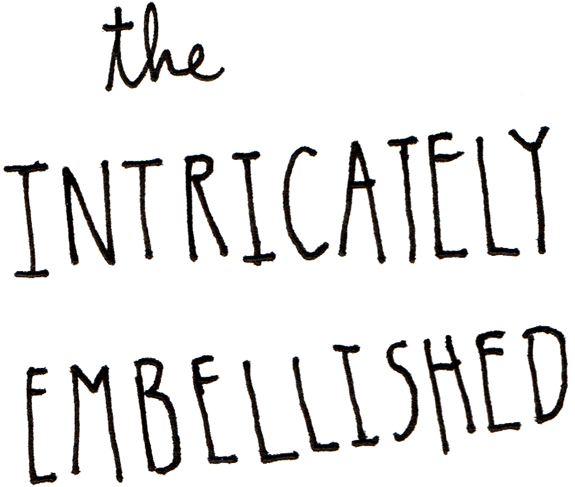 the
INTRICATELY
EMBELLISHED